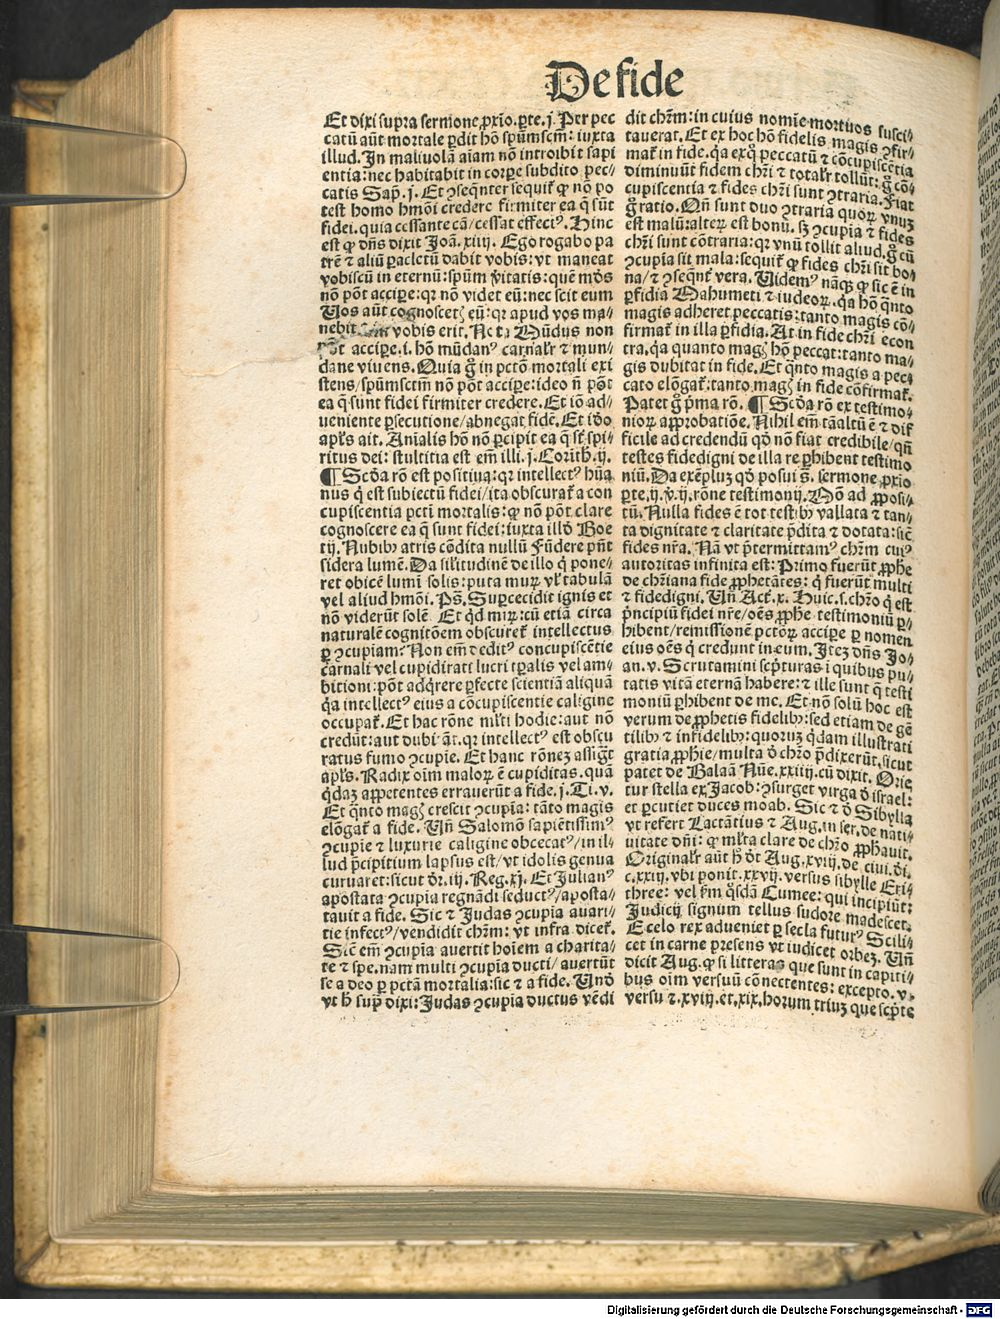 De fide
Et dixi supra sermone ꝓxio. ꝑte. j. Per pec
catū aūt mortale ꝑdit hō spūmscm̄: iuxta
illud. In maliuolā aīam nō introibit sapi
entia: nec habitabit in corꝑe subdito pec⸗
catis Sap. j. Et ꝯseqn̄ter sequit᷑ ꝙ nō po
test homo hmōi credere firmiter ea q̄ sūt
fidei. quia cessante cā/cessat effectꝰ. Hinc
est ꝙ dn̄s dixit Joā. xiiij. Ego rogabo pa
trē ⁊ aliū ꝑacletū dabit vobis: vt maneat
vobiscū in eternū: spūm v̄itatis: quē mūdꝰ
nō pōt acciꝑe: qꝛ nō videt eū: nec scit eum
Vos aūt cognoscetꝭ eū: qꝛ apud vos ma⸗
nebit vobis erit. No ta Mūdus non
pōt acciꝑe. i. hō mūdanꝰ carnalr̄ ⁊ mun⸗
dane viuens. Quia g̊ in pctō mortali exi
stens/spūmsctm̄ nō pōt acciꝑe: ideo nō pōt
ea q̄ sunt fidei firmiter credere. Et iō ad⸗
ueniente ꝑsecutione/abnegat fidē. Et ido
apl̄s ait. Anīalis hō nō ꝑcipit ea q̄ st̄ spi⸗
ritus dei: stultitia est em̄ illi. j. Corith. ij.
¶ Scd̄a rō est positiua: qꝛ intellectꝰ hūa
nus q̇ est subiectū fidei/ita obscurat᷑ a con
cupiscentia pcti mortalis: ꝙ nō pōt clare
cognoscere ea q̄ sunt fidei: iuxta illd̄ Boe
tij. Nubibꝰ atris cōdita nullū Fūdere pn̄t
sidera lumē. Da sil̄itudinē de illo q̇ pone⸗
ret obicē lumī solis: puta murꝫ vl᷑ tabulā
vel aliud hmōi. Ps̄. Suꝑcecidit ignis et
nō viderūt solē. Et qd̄ mirꝫ: cū etiā circa
naturalē cognitōem obscuret᷑ intellectus
ꝑ ꝯcupiam? Non em̄ deditꝰ concupiscētie
carnali vel cupiditati lucri tꝑalis vel am⸗
bitioni: pōt adq̇rere ꝑfecte scientiā aliquā
q̇a intellectꝰ eius a cōcupiscentie caligine
occupat᷑. Et hac rōne ml̄ti hodie: aut nō
credūt: aut dubitāt. qꝛ intellectꝰ est obscu
ratus fumo ꝯcupīe. Et hanc rōneꝫ assigt̄
apl̄s. Radix oīm maloꝝ ē cupiditas. quā
q̇daꝫ appetentes errauerūt a fide. j. Ti. v.
Et qn̄to magꝭ crescit ꝯcupīa: tāto magis
elōgat᷑ a fide. Un̄ Salomō sapiētissimꝰ
ꝯcupīe ⁊ luxurie caligine obcecatꝰ/in il⸗
lud p̄cipitium lapsus est/vt idolis genua
curuaret: sicut dr̄. iij. Reg. xj. Et Julianꝰ
apostata ꝯcupīa regnādi seductꝰ/aposta⸗
tauit a fide. Sic ⁊ Judas ꝯcupīa auari⸗
tie infectꝰ/vendidit chr̄m: vt infra dicet᷑.
Sic em̄ ꝯcupīa auertit hoīem a charita⸗
te ⁊ spe. nam multi ꝯcupīa ducti/auertūt
se a deo ꝑ pctā mortalia: sic ⁊ a fide. Und̄
vt h̄ supͣ dixi: Judas ꝯcupīa ductus vēdi
dit chr̄m: in cuius nomīe mortuos susci⸗
tauerat. Et ex hoc hō fidelis magis ꝯfir⸗
mat᷑ in fide. q̇a exq̊ peccatū ⁊ cōcupiscētia
diminuūt fidem chr̄i ⁊ totalr̄ tollūt: g̊ cō⸗
cupiscentia ⁊ fides chr̄i sunt ꝯtraria. Fiat
g̊ ratio. Qn̄ sunt duo ꝯtraria quoꝝ vnuꝫ
est malū: alterꝫ est bonū. sꝫ ꝯcupīa ⁊ fides
chr̄i sunt cōtraria: qꝛ vnū tollit aliud. g̊ cū
ꝯcupīa sit mala: sequit᷑ ꝙ fides chr̄i sit bo⸗
na/⁊ ꝯseqn̄t᷑ vera. Videmꝰ nāqꝫ ꝙ sic ē in
ꝑfidia Mahumeti ⁊ iudeoꝝ. q̇a hō qn̄to
magis adheret peccatis: tanto magis cō⸗
firmat᷑ in illa ꝑfidia. At in fide chr̄i econ
tra. q̇a quanto magꝭ hō peccat: tanto ma⸗
gis dubitat in fide. Et qn̄to magis a pec⸗
cato elōgat᷑: tanto magꝭ in fide cōfirmat᷑.
Patet g̊ pͥma rō. ¶ Scd̄a rō ex testimo⸗
nioꝝ approbatiōe. Nihil em̄ tāaltū ē ⁊ dif
ficile ad credendū qd̄ nō fiat credibile/qn̄
testes fidedigni de illa re ꝑhibent testimo
niū. Da exēpluꝫ qd̄ posui s̄. sermone ꝓxio
ꝑte. ij. ꝟ. ij. rōne testimonij. Mō ad ꝓposi⸗
tū. Nulla fides ē tot testibꝰ vallata ⁊ tan⸗
ta dignitate ⁊ claritate p̄dita ⁊ dotata: sic̄
fides nr̄a. Nā vt p̄termittamꝰ chr̄m cuiꝰ
autoritas infinita est: Primo fuerūt ꝓphe
de chr̄iana fide ꝓphetātes: q̇ fuerūt multi
⁊ fidedigni. Un̄ Act̄. x. Huic. s. chr̄o q̇ est
pͥncipiū fidei nr̄e/oēs ꝓphe testimoniū ꝑ⸗
hibent/remissionē pctōꝝ acciꝑe ꝑ nomen
eius oēs q̇ credunt in eum. Iteꝫ dn̄s Jo⸗
an. v. Scrutamini scp̄turas i quibus pu⸗
tatis vitā eternā habere: ⁊ ille sunt q̄ testi
moniū ꝑhibent de me. Et nō solū hoc est
verum de ꝓphetis fidelibꝰ: sed etiam de gē
tilibꝰ ⁊ infidelibꝰ: quoruꝫ q̇dam illustrati
gratia ꝓphīe/multa d̄ chr̄o p̄dixerūt. sicut
patet de Balaā Nūe. xxiiij. cū dixit. Orie
tur stella ex Jacob: ꝯsurget virga d̄ israel:
et ꝑcutiet duces moab. Sic ⁊ d̄ Sibylla
vt refert Lactātius ⁊ Aug. in ser. de nati⸗
uitate dn̄i: ꝙ ml̄ta clare de chr̄o ꝓphauit.
Originalr̄ aūt hꝫ dt̄ Aug. xviij. de ciui. di.
c. xxiij. vbi ponit. xxvij. versus sibylle Eri⸗
three: vel sm̄ q̇sdā Cumee: qui incipiūt:
Judicij signum tellus sudore madescet.
E celo rex adueniet ꝑ secla futurꝰ Scili⸗
cet in carne presens vt iudicet orbeꝫ. Un̄
dicit Aug. ꝙ si litteras que sunt in capiti⸗
bus oīm versuū cōnectentes: excepto. v.
versu ⁊. xviij. et. xix. horum triuꝫ que scp̄te
Digitalisierung gefördert durch die Deutsche Forschungsgemeinschaft - DFG